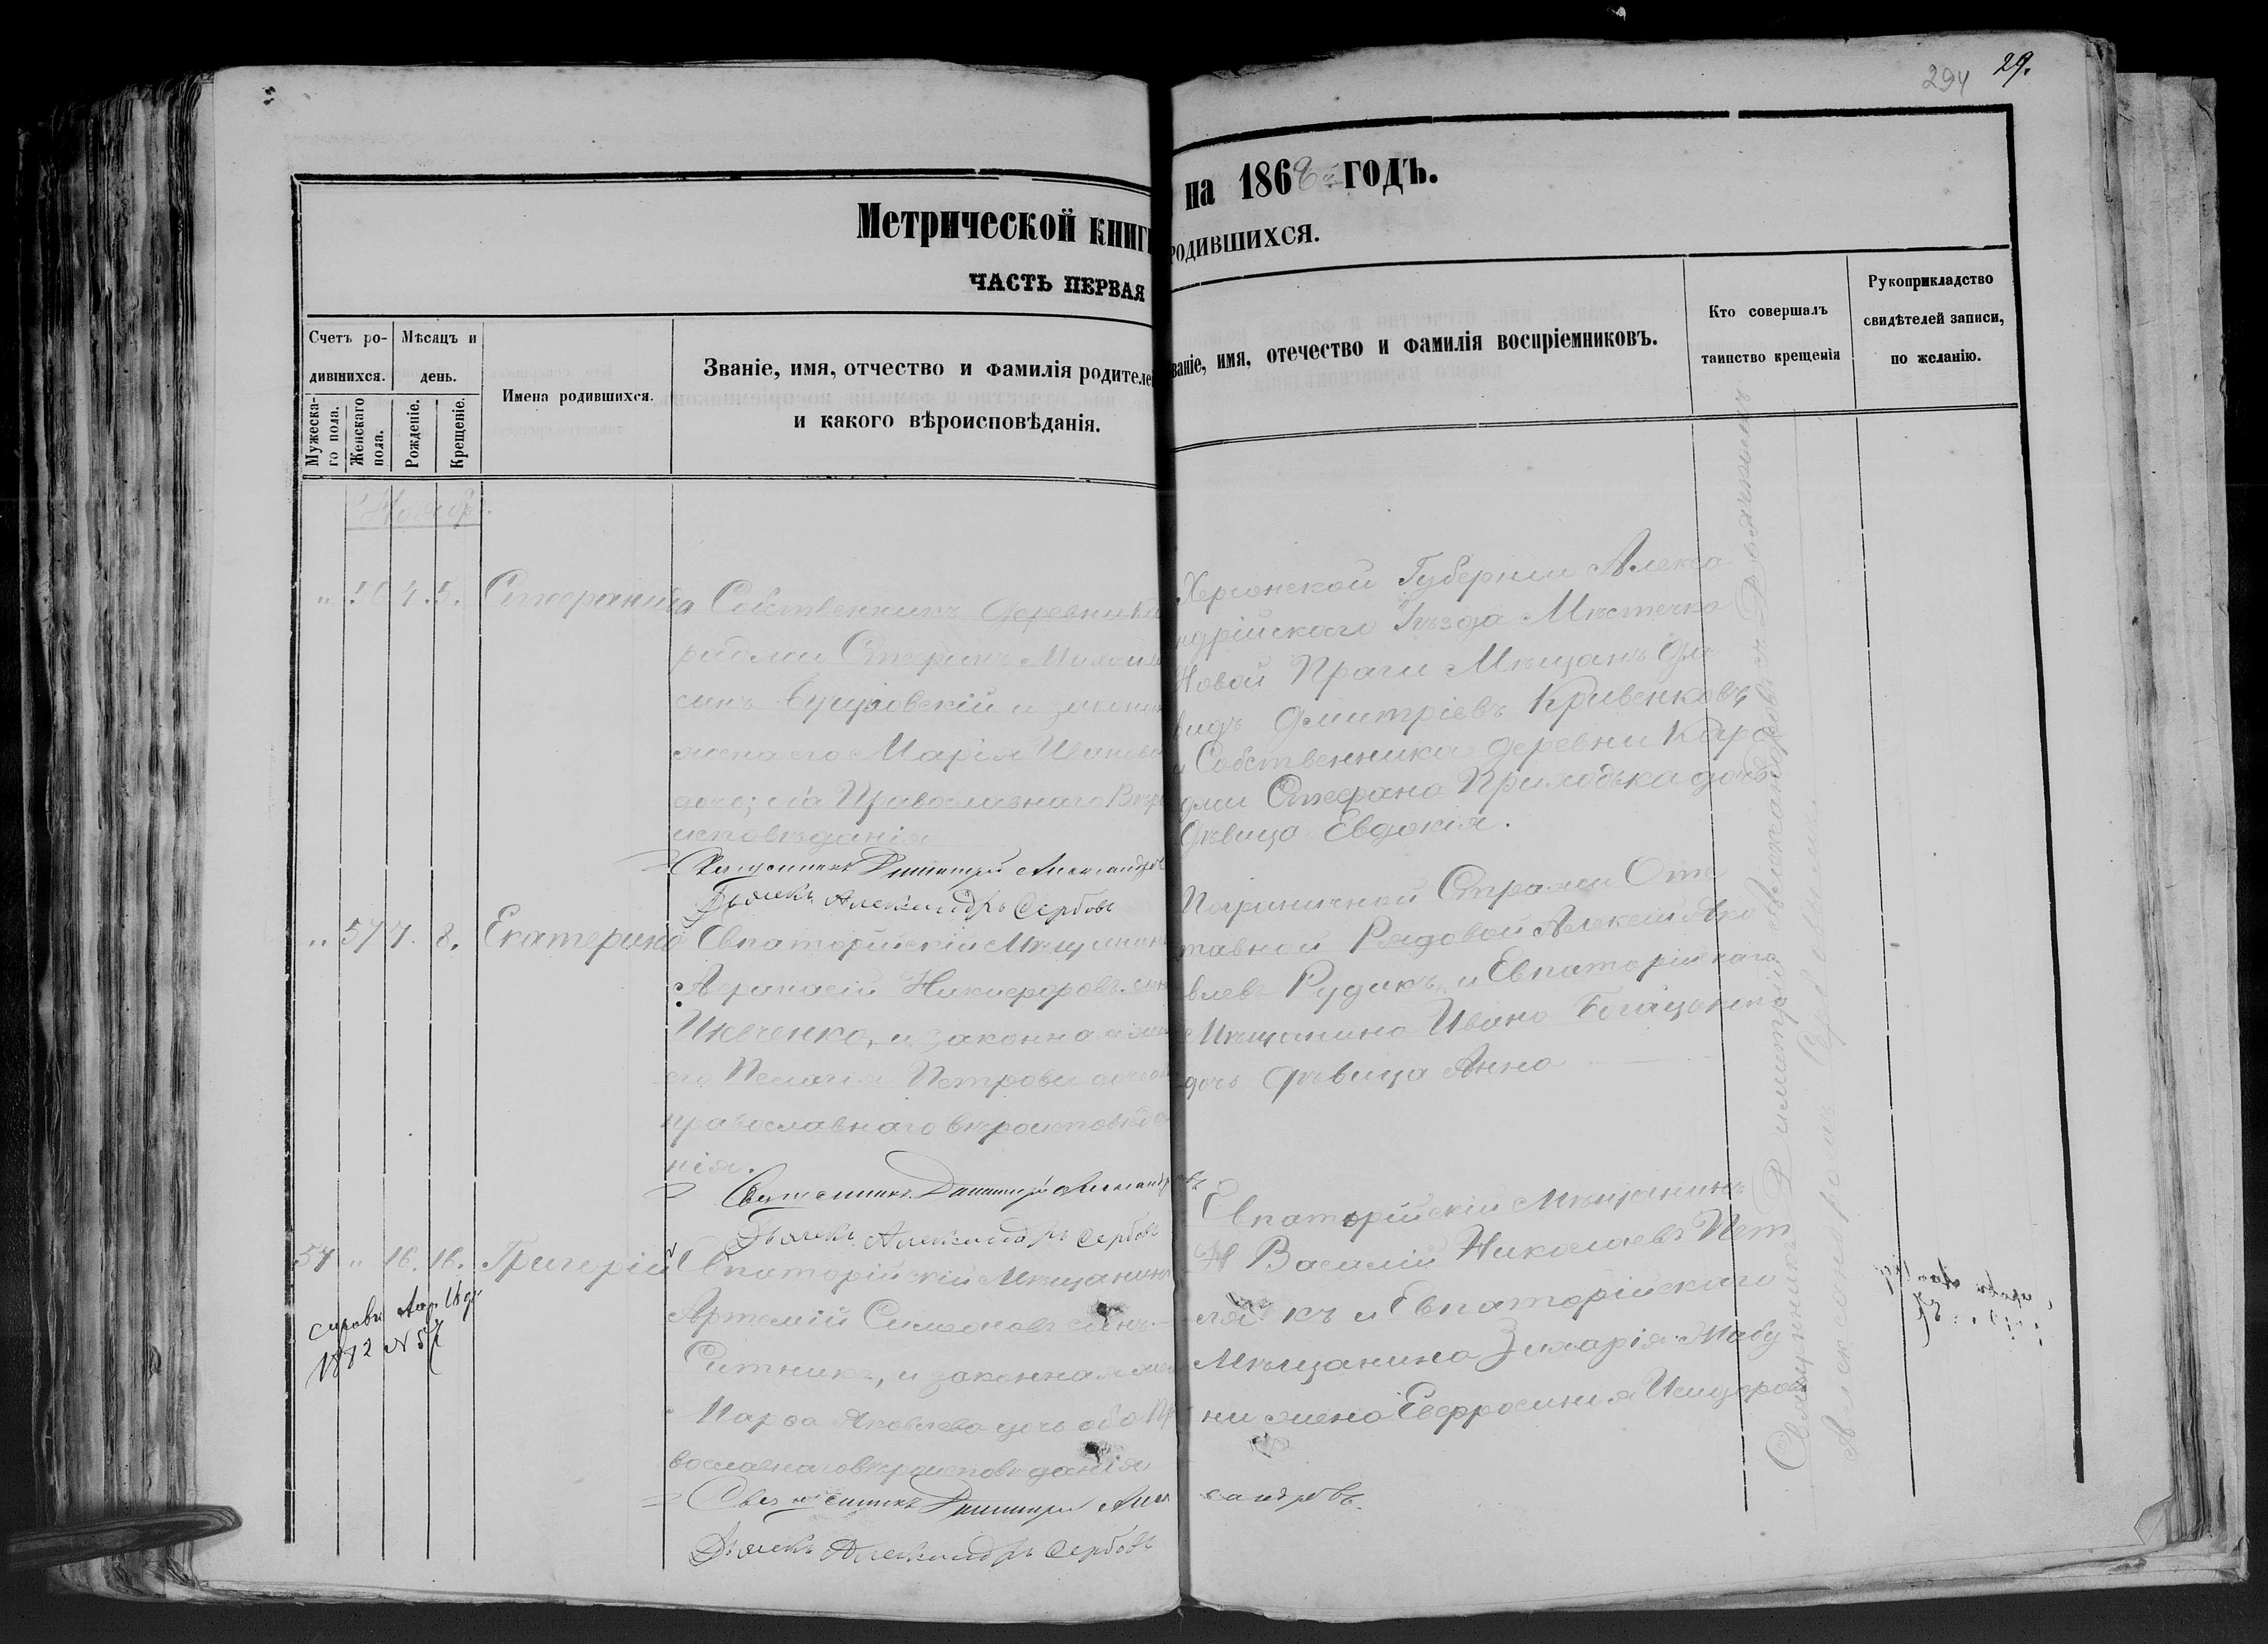 294 29.
Метрической книги на 1868й годъ.
ЧАСТЬ ПЕРВАЯ РОДИВШИХСЯ.
Счетъ ро-
дившихся.
Мужеска-
го пола.
Женскаго
пола.
Мѣсяцъ и
день.
Рожденіе.
Крещеніе.
Имена родившихся.
Званіе, имя, отчество и фамилія родителей
и какого вѣроисповѣданія.
Званіе, имя, отечество и фамилія воспріемниковъ.
Кто совершалъ
таинство крещенія
Рукоприкладство
свидѣтелей записи,
по желанію.
Ноябрь.
" 56 4. 5. Стефанида
Собственникъ деревни Ка
Стефанъ Михайл
сынъ и законная
жена его Марія Иванова
дочь; оба Православнаго Вѣро
исповѣданія
Священникъ Димитрій Александровъ
Дьячекъ Александръ Сербовъ
Херсонской Губерніи Алекса
ндрійскаго Уѣзда Мѣстечка
Новой Праги Мѣщанъ Да
видъ Дмитріевъ Кривенковъ
и Собственника деревни Кара
Стефана Приходька дочь
дѣвица Евдокія.
" 57 7. 8. Екатерина
Евпаторійскій Мѣщанинъ
Афанасій Никифоровъ сынъ
Шевченко, и законная жена
его Пелагія Петрова дочь оба
православнаго вѣроисповѣда
нія.
Священникъ Димитрій Александровъ
Дьячекъ Александръ Сербовъ
Пограничной Стражи Отс
тавной Рядовой Алексій Яко
влевъ Рудикъ, и Евпаторійскаго
Мѣщанина Ивана
дочь дѣвица Анна
57 " 16. 16. Григорій
справк Апр 18
1882 N 57
Евпаторійскій Мѣщанинъ
Артемій Симеоновъ сынъ
Ситникъ, и законная жена
Марѳа Яковлева дочь оба Пра
вославнаго вѣроисповѣданія
Священникъ Димитрій Александровъ.
Дьячекъ Александръ Сербовъ
Евпаторійскій Мѣщанинъ
Василій Николаевъ Пет
къ и Евпаторійскаго
Мѣщанина Захарія Мабу
ни жена Евфросинія
Священникъ Димитрій Александровъ съ Дьячкомъ
Александромъ Сербовымъ.